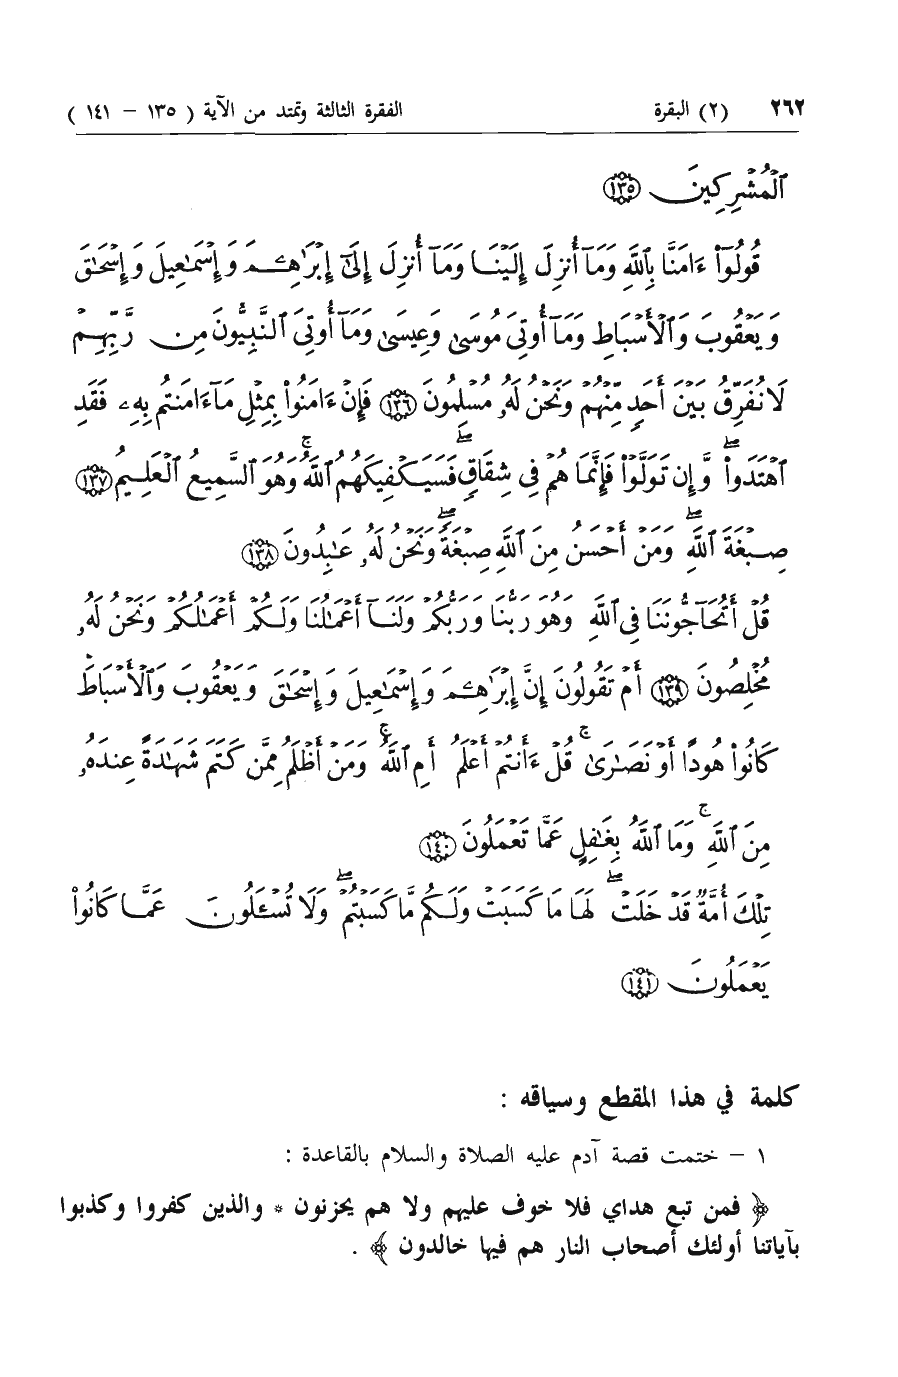 ٢٦٢ (٢) البقرة الفقرة الثالثة وتمتد من الآية ( ١٣٥ – ١٤١ )
ٱلْمُشْرِكِينَ ١٣٥
قُولُوٓا۟ ءَامَنَّا بِٱللَّهِ وَمَآ أُنزِلَ إِلَيْنَا وَمَآ أُنزِلَ إِلَىٰٓ إِبْرَٰهِـۧمَ وَإِسْمَٰعِيلَ وَإِسْحَٰقَ
وَيَعْقُوبَ وَٱلْأَسْبَاطِ وَمَآ أُوتِىَ مُوسَىٰ وَعِيسَىٰ وَمَآ أُوتِىَ ٱلنَّبِيُّونَ مِن رَّبِّهِمْ
لَا نُفَرِّقُ بَيْنَ أَحَدٍ مِّنْهُمْ وَنَحْنُ لَهُۥ مُسْلِمُونَ ١٣٦ فَإِنْ ءَامَنُوا۟ بِمِثْلِ مَآ ءَامَنتُم بِهِۦ فَقَدِ
ٱهْتَدَوا۟ۖ وَّإِن تَوَلَّوْا۟ فَإِنَّمَا هُمْ فِى شِقَاقٍۖ فَسَيَكْفِيكَهُمُ ٱللَّهُۚ وَهُوَ ٱلسَّمِيعُ ٱلْعَلِيمُ ١٣٧
صِبْغَةَ ٱللَّهِۖ وَمَنْ أَحْسَنُ مِنَ ٱللَّهِ صِبْغَةًۖ وَنَحْنُ لَهُۥ عَٰبِدُونَ ١٣٨
قُلْ أَتُحَآجُّونَنَا فِى ٱللَّهِ وَهُوَ رَبُّنَا وَرَبُّكُمْ وَلَنَآ أَعْمَٰلُنَا وَلَكُمْ أَعْمَٰلُكُمْ وَنَحْنُ لَهُۥ
مُخْلِصُونَ ١٣٩ أَمْ تَقُولُونَ إِنَّ إِبْرَٰهِـۧمَ وَإِسْمَٰعِيلَ وَإِسْحَٰقَ وَيَعْقُوبَ وَٱلْأَسْبَاطَ
كَانُوا۟ هُودًا أَوْ نَصَٰرَىٰۚ قُلْ ءَأَنتُمْ أَعْلَمُ أَمِ ٱللَّهُۚ وَمَنْ أَظْلَمُ مِمَّن كَتَمَ شَهَٰدَةً عِندَهُۥ
مِنَ ٱللَّهِۚ وَمَا ٱللَّهُ بِغَٰفِلٍ عَمَّا تَعْمَلُونَ ١٤٠
تِلْكَ أُمَّةٌ قَدْ خَلَتْۖ لَهَا مَا كَسَبَتْ وَلَكُم مَّا كَسَبْتُمْۖ وَلَا تُسْـَٔلُونَ عَمَّا كَانُوا۟
يَعْمَلُونَ ١٤١
كلمة في هذا المقطع وسياقه :
١ – ختمت قصة آدم عليه الصلاة والسلام بالقاعدة :
﴿ فمن تبع هداي فلا خوف عليهم ولا هم يحزنون * والذين كفروا وكذبوا
بآياتنا أولئك أصحاب النار هم فيها خالدون ﴾ .